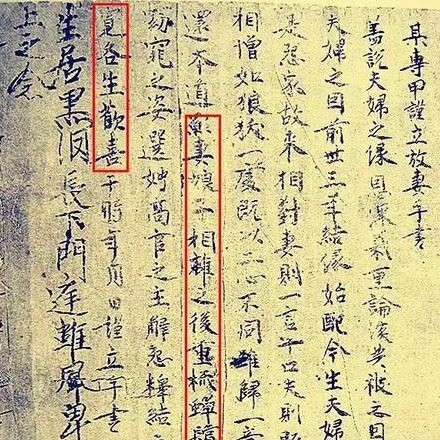 某專甲謹立放妻手書
蓋說夫婦之緣恩深義重論談共被之因
夫婦之因前世三年結緣始配今生夫婦
是怨家故來相對妻則一言十口夫則
相憎如狼一處既以二心不同難歸一意
還本道願妻娘子相離之後重梳蟬鬢
窈窕之姿選娉高官之主解怨釋結
寬各生歡喜于時年月日謹立手書
生居黑下門庭雖
上之念